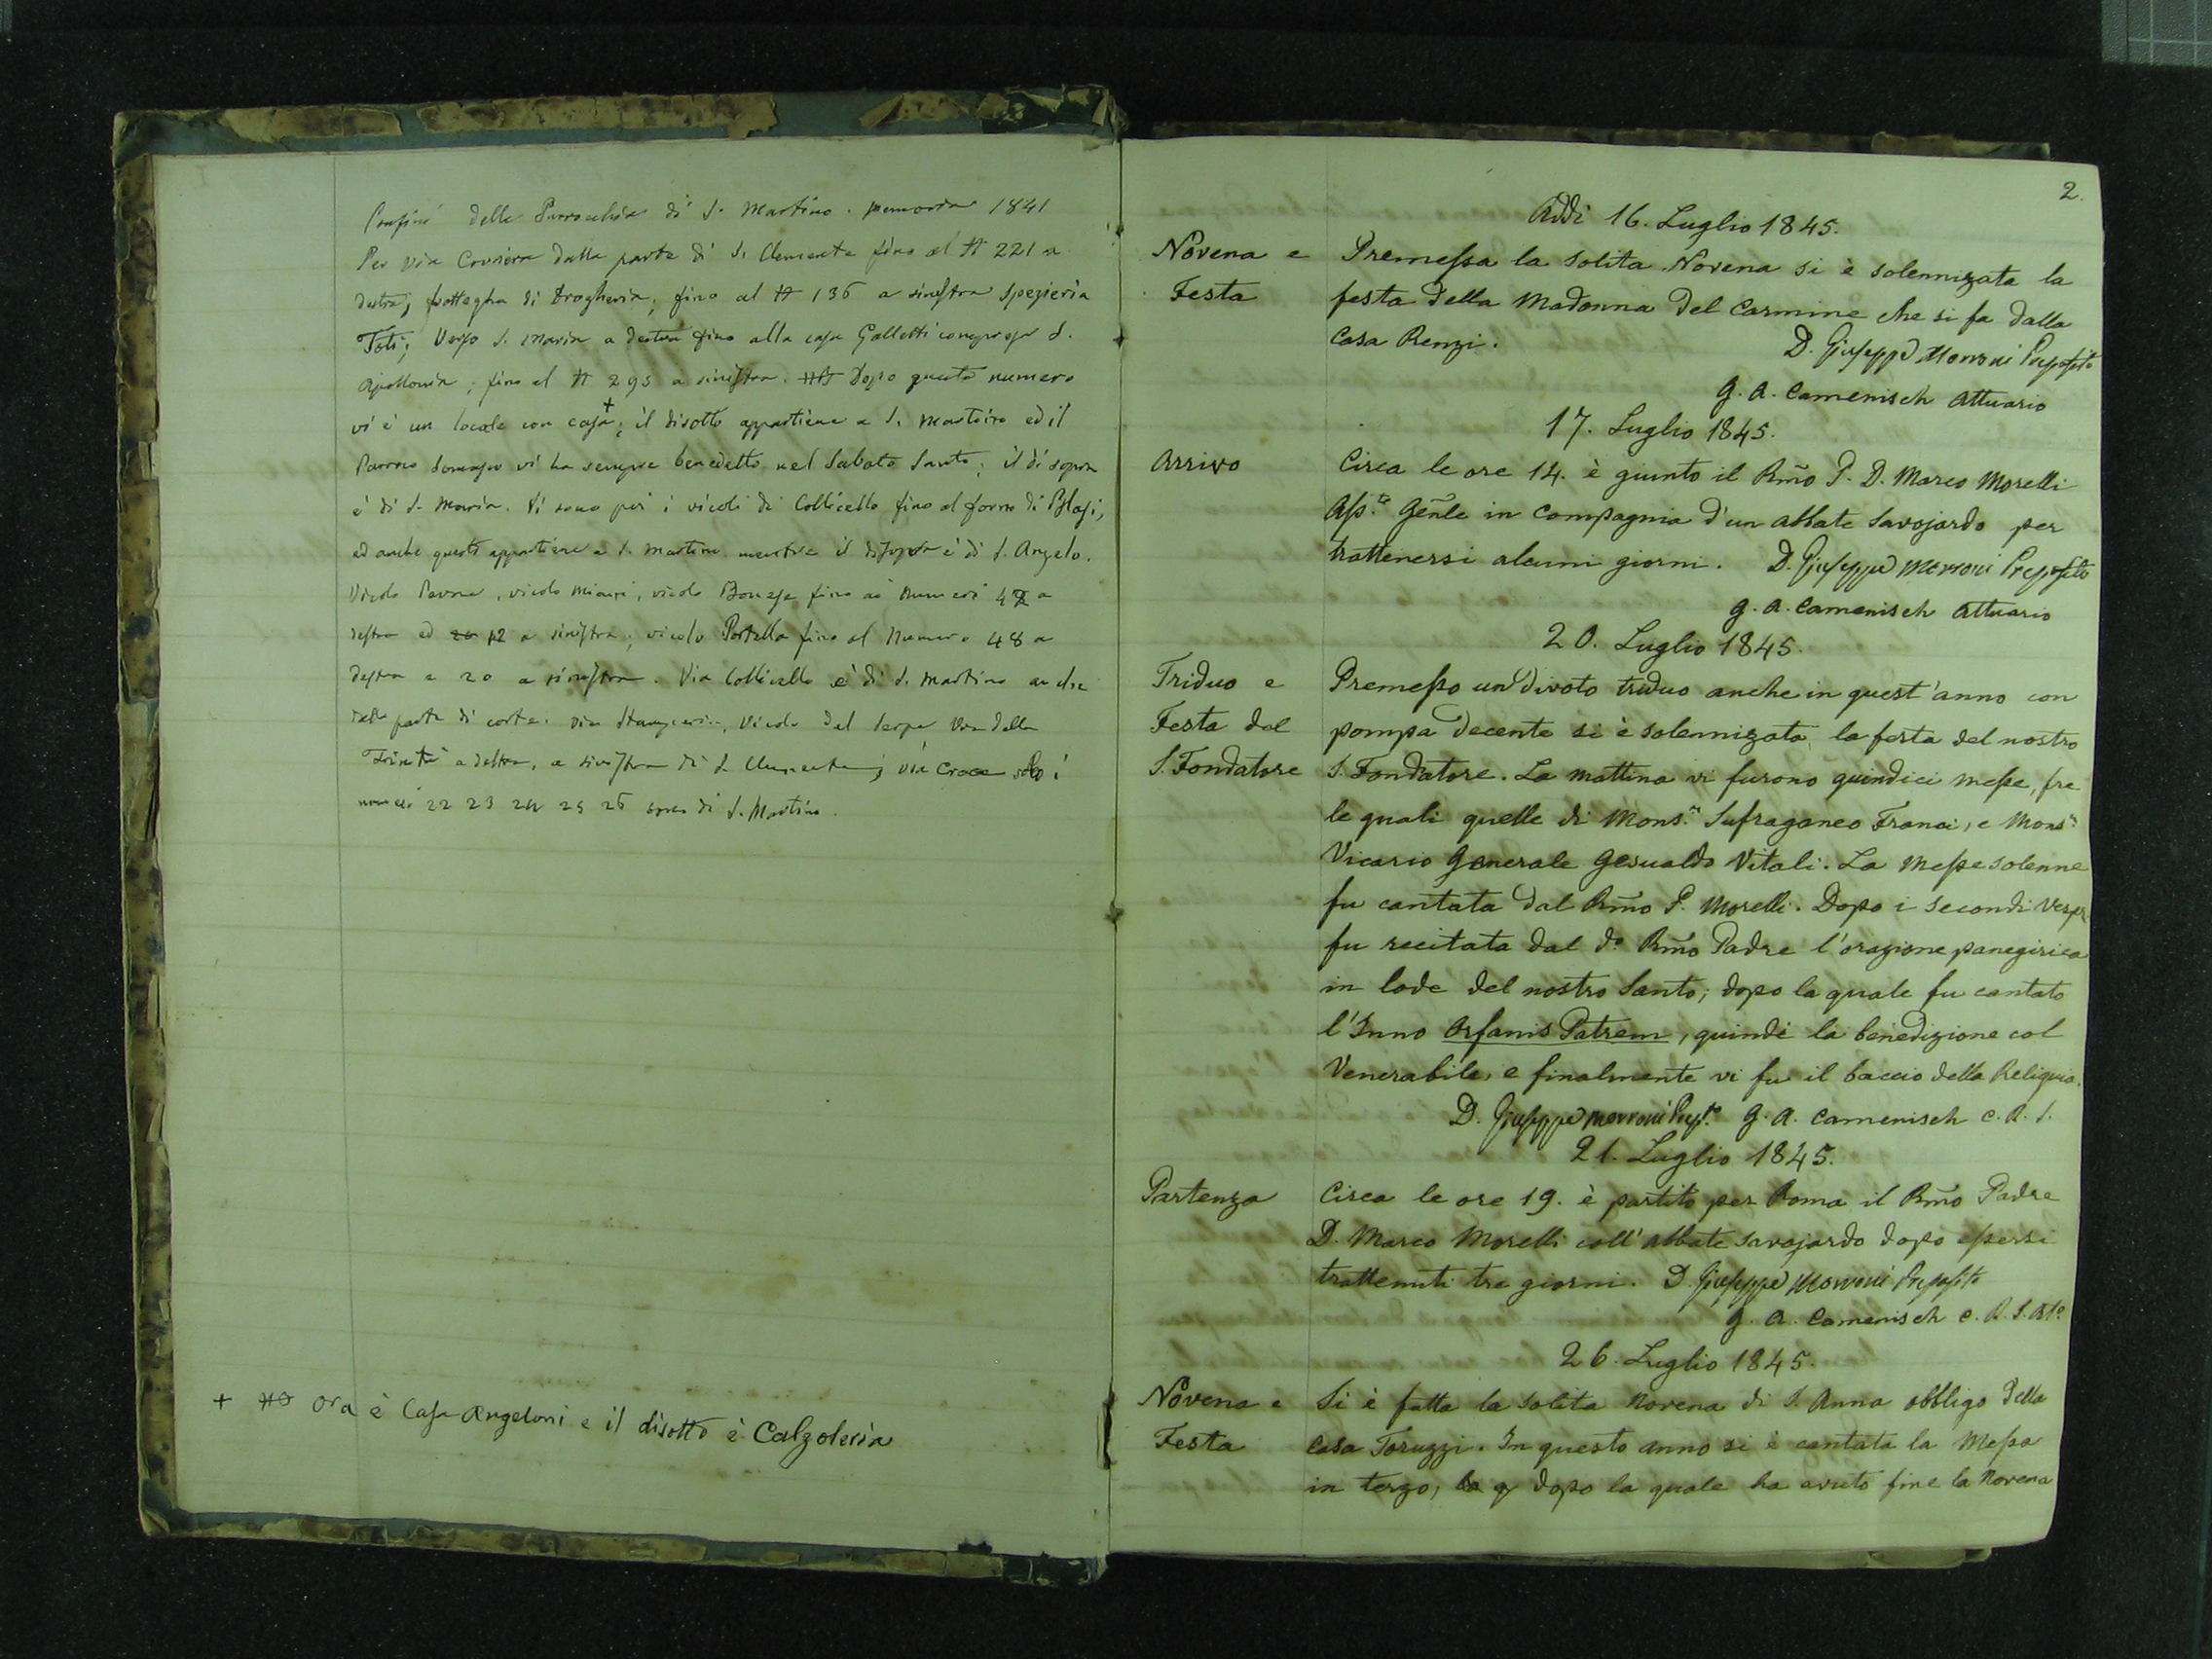 Confini della Parrocchia di S. Martino. memoria 1841
Per via Corriera dalla parte di S. Clemente fino al N 221 a
destra, bottegha di drogheria, fino al N 136 a sinistra spezieria
Toti; Verso S. Maria a destra fino alla casa Gallotti compresa S.
Apollonia; fino al N 295 a sinistra. Dopo questo numero
vi è un locale con casa+; il disotto appartiene a S. Martino ed il
Parroco Somasco vi ha sempre benedetto nel Sabato Santo; il di sopra
è di S. Maria. Vi sono poi i vicoli di Collicello fino al forno di Blasi,
ed anche questi appartiene a S. Martino mentre il disopra è di S. Angelo.
Vicolo Pavone, vicolo fino ai numeri 42 a
destra ed 12 a sinistra; vicolo Portella fino al Numero 48 a
destra e 20 a sinistra. Via Collicello è di S. Martino anche
dalla parte di corte. via Stamperia, Vicolo del Serpe Via della
Trinità a destra, a sinistra di S. Clemente; via Croce solo i
numeri 22 23 24 25 26 sono di S. Martino.
+ Ora è Casa Angeloni e il disotto è Calzoleria
2.
Addi 16. Luglio 1845.
Novena e Premessa la solita Novena si è solennizata la
Festa festa della Madonna del Carmine che si fa dalla
Casa Renzi. D. Giuseppe Morroni Preposito
G. A. Camenisch Attuario
17. Luglio 1845.
Arrivo Circa le ore 14. è giunto il Rm̃o P. D. Marco Morelli
Ass.te Gẽnle in compagnia d'un abbate Savojardo per
trattenersi alcuni giorni. D. Giuseppe Morroni Preposito
G. A. Camenisch Attuario
20. Luglio 1845.
Triduo e Premesso un divoto triduo anche in quest'anno con
Festa del pompa decente si è solennizata la festa del nostro
S. Fondatore S. Fondatore. La mattina vi furono quindici messe, fre
le quali quelle di Mons.r Sufraganeo Franci, e Mons.r
Vicario Generale Gesualdo Vitali. La Messe solenne
fu cantata dal Rm̃o P. Morelli. Dopo i secondi Vespri
fu recitata dal d.o Rm̃o Padre l'orazione panegirica
in lode del nostro Santo; dopo la quale fu cantato
l'Inno Orfanis Patrem, quindi la benedizione col
Venerabile, e finalmente vi fu il baccio della Reliquia.
D. Giuseppe Morroni Prep.to G. A. Camenisch C. R. S.
21. Luglio 1845.
Partenza Circa le ore 19. è partito per Roma il Rm̃o Padre
D. Marco Morelli coll'abbate savojardo dopo essersi
trattenuti tre giorni. D. Giuseppe Morroni Preposito
G. A. Camenisch C. R. S. Att.o
26. Luglio 1845.
Novena e Si è fatta la solita Novena di S. Anna obbligo della
Festa Casa Toruzzi. In questo anno si è cantata la Messa
in terzo, dopo la quale ha avuto fine la Novena